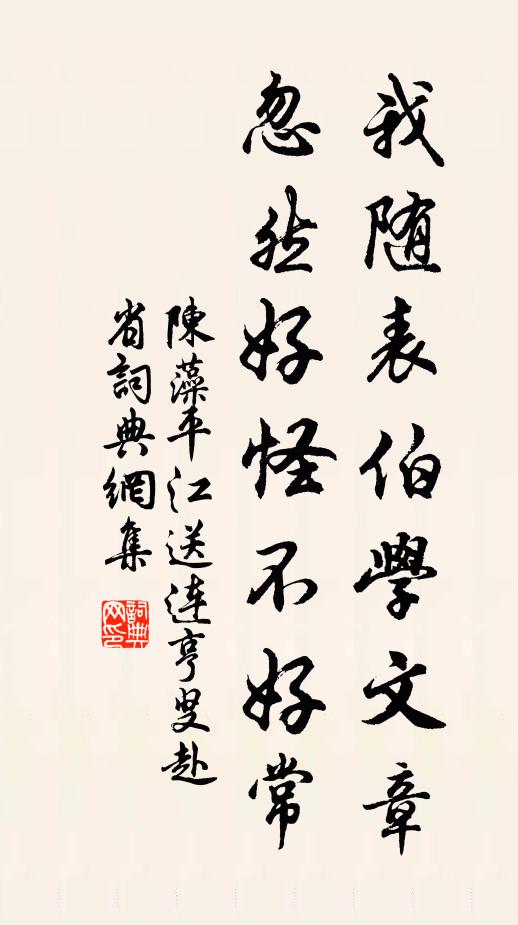 我随表伯學文章
忽然好怪不好常
陳藻平江送連亨叟赴
省詞典網集
詞典网印